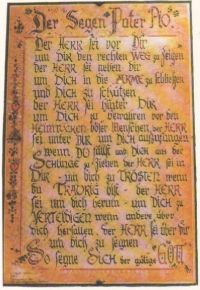 Der Segen Pater Pio
Der HERR sei vor Dir
um DIR den rechten WEG zu zeigen
der HERR sei neben dir
um DICH in die ARME zu schließen
und DICH zu schützen
der HERR sei hinter DIR
um DICH zu bewahren vor den
HEIMTÜCKEN böser Menschen der HERR
sei unter DIR um DICH aufzufangen
wenn DU fällst und DICH aus der
Schlinge zu ziehen der HERR sei in
DIR um dich zu TRÖSTEN wenn
DU TRAURIG bist der HERR
sei um dich herum um DICH zu
VERTEIDIGEN wenn andere über
dich herfallen der HERR sei über DIR
um dich zu segnen
So segne DICH der gütige GOTT